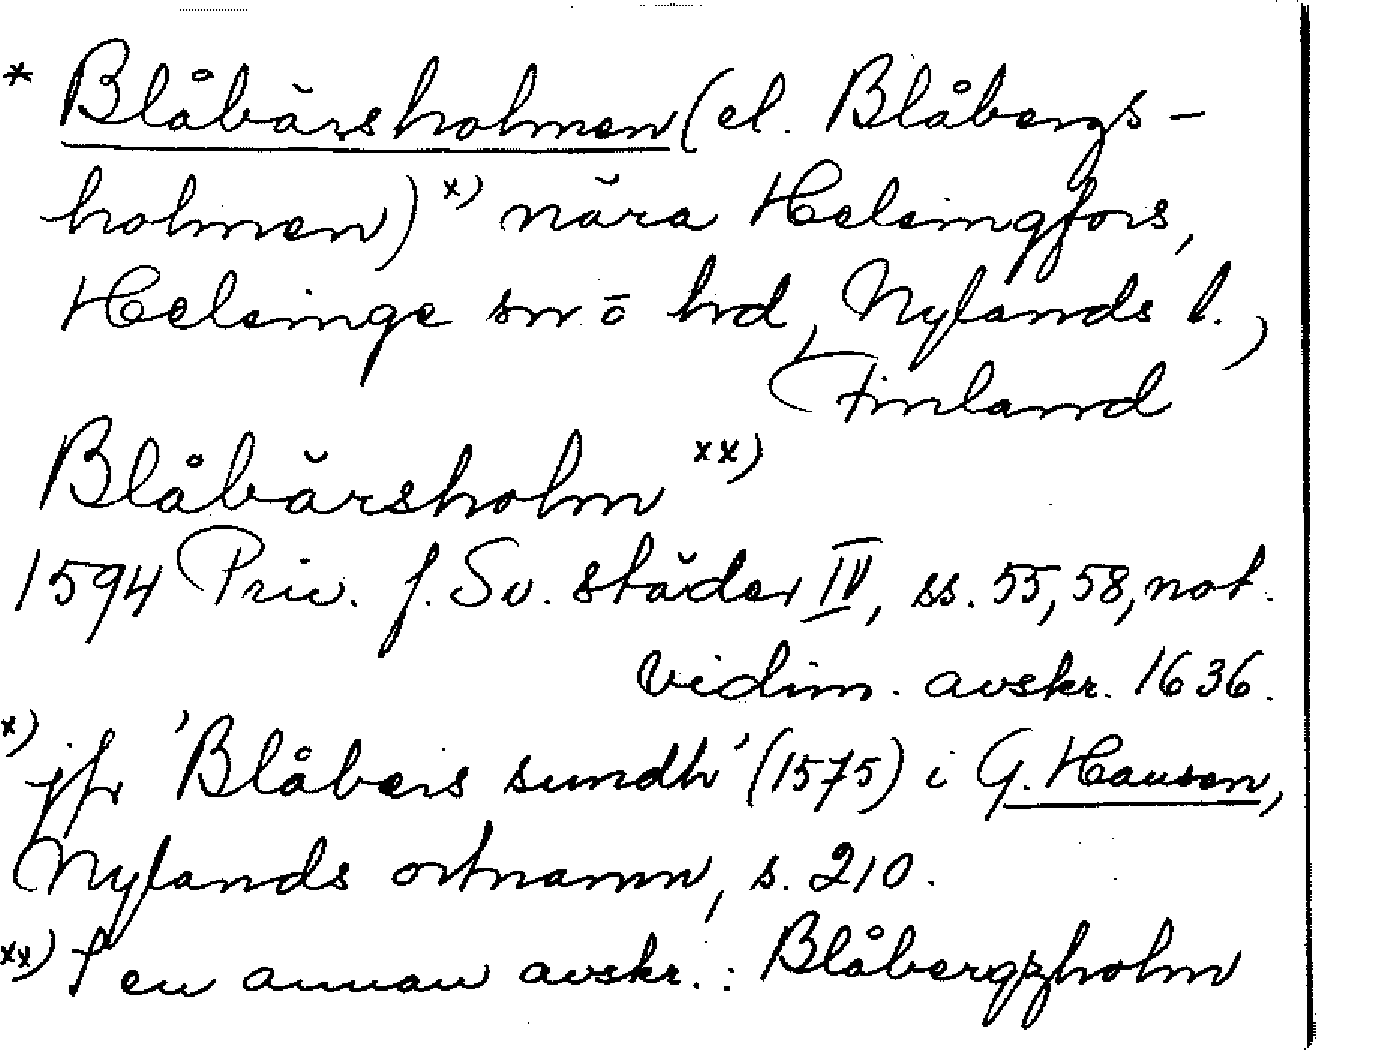 * Blåbärsholmen (el. Blåbergs-
holmen) x) nära Helsingfors,
Helsinge sn ō hd, Nylands l.,
Finland
Blåbärsholm xx)
1594 Priv. f. Sv. städer IV, ss. 55, 58, not.
vidim. avskr. 1636.
x) jfr 'Blåbers sundh' (1575) i G. Hausen,
Nylands ortnamn, s. 210.
xx) I en annan avskr.: Blåbergzholm